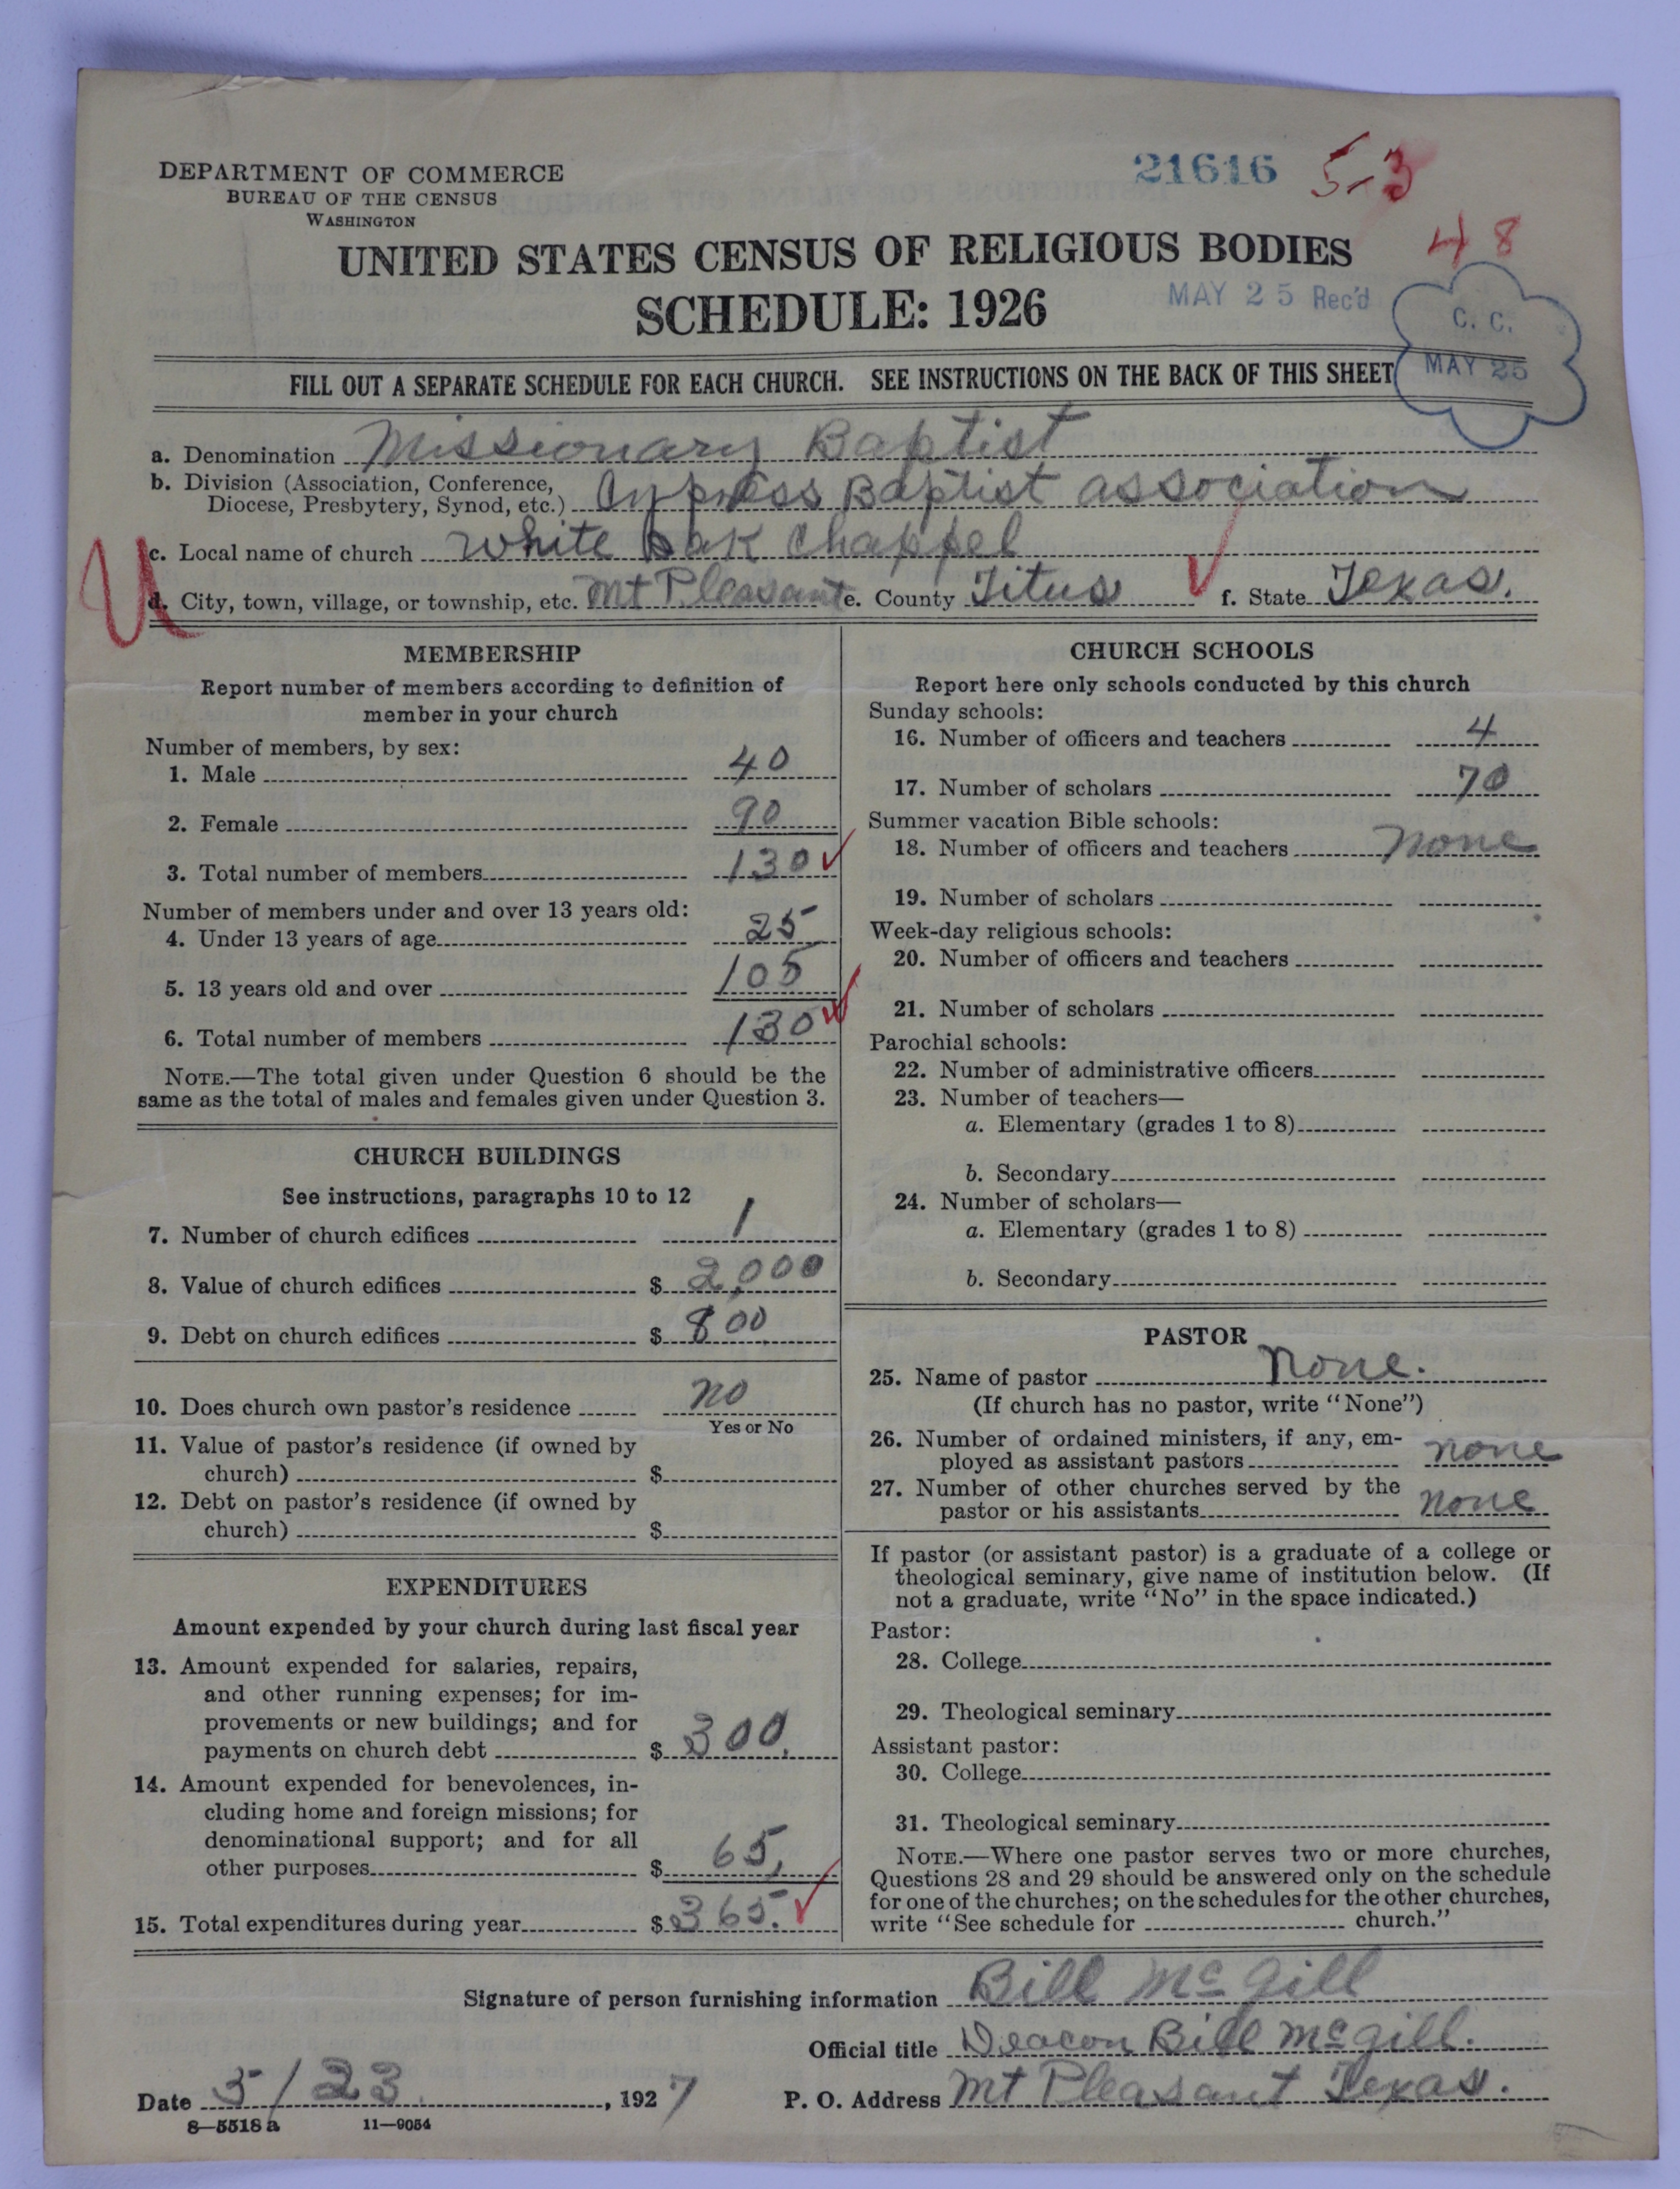 DEPARTMENT OF COMMERCE
BUREAU OF THE CENSUS
WASHINGTON
21616 5-3
48
UNITED STATES CENSUS OF RELIGIOUS BODIES
SCHEDULE: 1926
MAY 25 Rec'd
C. C.
MAY 25
FILL OUT A SEPARATE SCHEDULE FOR EACH CHURCH. SEE INSTRUCTIONS ON THE BACK OF THIS SHEET
a. Denomination Missionary Baptist
b. Division (Association, Conference,
Diocese, Presbytery, Synod, etc.) Cypress Baptist association
c. Local name of church White oak Chappel
d. City, town, village, or township, etc. Mt Pleasant e. County Titus f. State Texas.
U
MEMBERSHIP
Report number of members according to definition of
member in your church
Number of members, by sex:
1. Male 40
2. Female 90
3. Total number of members 130
Number of members under and over 13 years old:
4. Under 13 years of age 25
5. 13 years old and over 105
6. Total number of members 130
NOTE.—The total given under Question 6 should be the
same as the total of males and females given under Question 3.
CHURCH BUILDINGS
See instructions, paragraphs 10 to 12
7. Number of church edifices 1
8. Value of church edifices $ 2,000
9. Debt on church edifices $ 800
10. Does church own pastor's residence no
Yes or No
11. Value of pastor's residence (if owned by
church) $
12. Debt on pastor's residence (if owned by
church) $
EXPENDITURES
Amount expended by your church during last fiscal year
13. Amount expended for salaries, repairs,
and other running expenses; for im-
provements or new buildings; and for
payments on church debt $ 300.
14. Amount expended for benevolences, in-
cluding home and foreign missions; for
denominational support; and for all
other purposes $ 65,
15. Total expenditures during year $ 365.
CHURCH SCHOOLS
Report here only schools conducted by this church
Sunday schools:
16. Number of officers and teachers 4
17. Number of scholars 70
Summer vacation Bible schools:
18. Number of officers and teachers none
19. Number of scholars
Week-day religious schools:
20. Number of officers and teachers
21. Number of scholars
Parochial schools:
22. Number of administrative officers
23. Number of teachers—
a. Elementary (grades 1 to 8)
b. Secondary
24. Number of scholars—
a. Elementary (grades 1 to 8)
b. Secondary
PASTOR
25. Name of pastor none.
(If church has no pastor, write "None")
26. Number of ordained ministers, if any, em-
ployed as assistant pastors none
27. Number of other churches served by the
pastor or his assistants none
If pastor (or assistant pastor) is a graduate of a college or
theological seminary, give name of institution below. (If
not a graduate, write "No" in the space indicated.)
Pastor:
28. College
29. Theological seminary
Assistant pastor:
30. College
31. Theological seminary
NOTE.—Where one pastor serves two or more churches,
Questions 28 and 29 should be answered only on the schedule
for one of the churches; on the schedules for the other churches,
write "See schedule for church."
Signature of person furnishing information Bill McGill
Official title Deacon Bill McGill.
Date 5/23. , 1927 P. O. Address Mt Pleasant Texas.
8—5518 a 11—9054